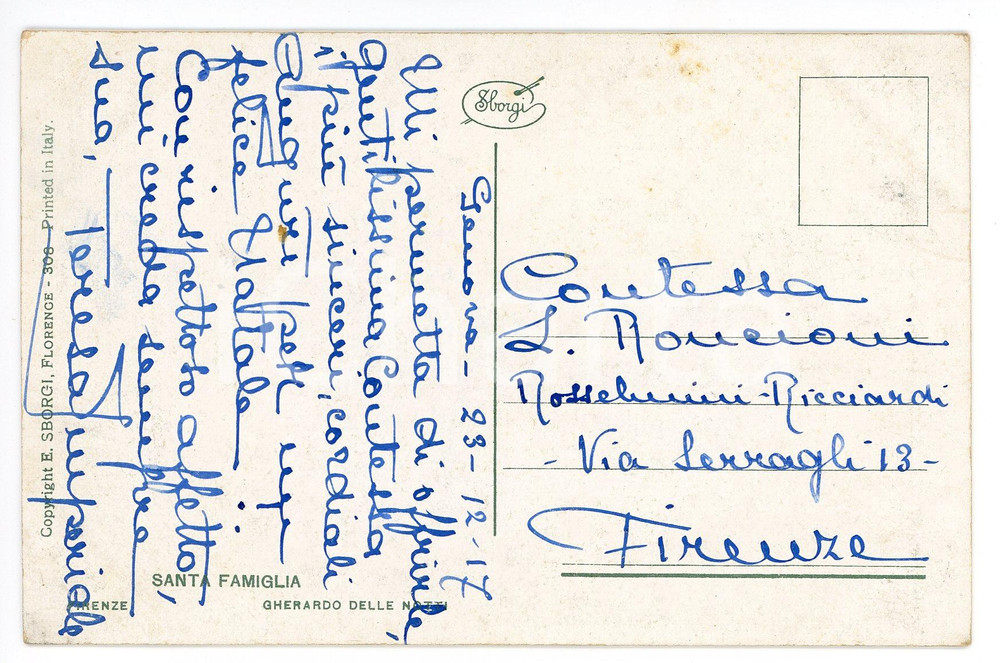 Genova - 23 - 12 - 17
Mi permetta di offrirle,
gentilissima Contessa
i più sinceri, cordiali
Auguri per un
felice Natale.
Con rispettoso affetto,
mi creda sempre
sua,
Teresa Imperiale
Sborgi
Contessa
L. Roncioni
Rosselmini-Ricciardi
- Via Serragli 13 -
Firenze
Copyright E. SBORGI, FLORENCE - 308 - Printed in Italy.
SANTA FAMIGLIA
FIRENZE GHERARDO DELLE NOTTI